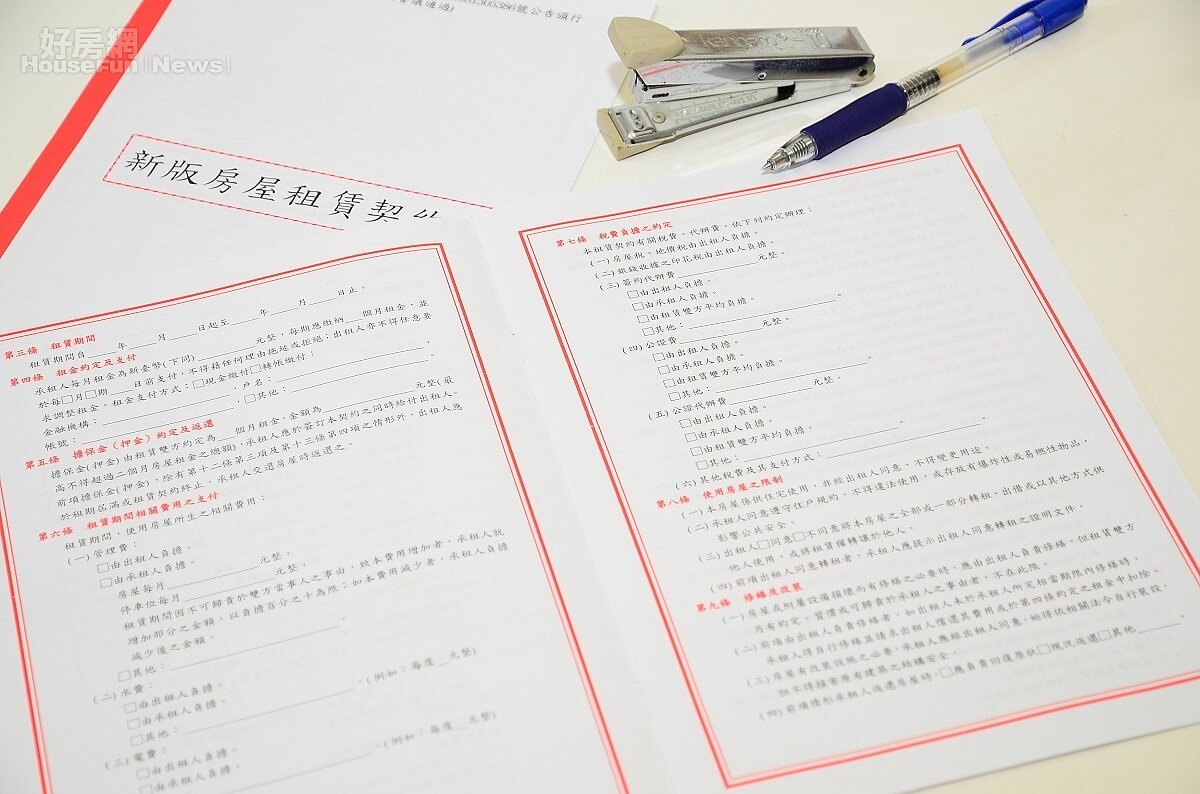 好房網
HouseFun News
305386號公告頒行
會議通過)
Kangaro
新版房屋租賃契
第三條 租賃期間
租賃期間自____年____月____日起至____年____月____日止。
第四條 租金約定及支付
承租人每月租金為新臺幣(下同)____元整,每期應繳納__個月租金,並
於每□月□期____日前支付,不得藉任何理由拖延或拒絕;出租人亦不得任意要
求調整租金。租金支付方式:□現金繳付□轉帳繳付:
金融機構:____,戶名:____,
帳號:____。□其他:____。
第五條 擔保金(押金)約定及返還
擔保金(押金)由租賃雙方約定為__個月租金,金額為____元整(最
高不得超過二個月房屋租金之總額),承租人應於簽訂本契約之同時給付出租人。
前項擔保金(押金),除有第十二條第三項及第十三條第四項之情形外,出租人應
於租期屆滿或租賃契約終止,承租人交還房屋時返還之。
第六條 租賃期間相關費用之支付
租賃期間,使用房屋所生之相關費用:
(一)管理費:
□由出租人負擔。
□由承租人負擔。
房屋每月____元整。
停車位每月____元整。
租賃期間因不可歸責於雙方當事人之事由,致本費用增加者,承租人就
增加部分之金額,以負擔百分之十為限;如本費用減少者,承租人負擔
減少後之金額。
□其他:____。
(二)水費:
□由出租人負擔。
□由承租人負擔。
□其他:____。(例如:每度__元整)
(三)電費:
□由出租人負擔。
□由承租人負擔。
。(例如:每度__元整)
第七條 稅費負擔之約定
本租賃契約有關稅費、代辦費,依下列約定辦理:
(一)房屋稅、地價稅由出租人負擔。
(二)銀錢收據之印花稅由出租人負擔。
(三)簽約代辦費____元整。
□由出租人負擔。
□由承租人負擔。
□由租賃雙方平均負擔。
□其他:____。
(四)公證費____元整。
□由出租人負擔。
□由承租人負擔。
□由租賃雙方平均負擔。
□其他:____。
(五)公證代辦費____元整。
□由出租人負擔。
□由承租人負擔。
□由租賃雙方平均負擔。
□其他:____。
(六)其他稅費及其支付方式:____。
第八條 使用房屋之限制
(一)本房屋係供住宅使用,非經出租人同意,不得變更用途。
(二)承租人同意遵守住戶規約,不得違法使用,或存放有爆炸性或易燃性物品,
影響公共安全。
(三)出租人□同意□不同意將本房屋之全部或一部分轉租、出借或以其他方式供
他人使用,或將租賃權轉讓於他人。
(四)前項出租人同意轉租者,承租人應提示出租人同意轉租之證明文件。
第九條 修繕及改裝
(一)房屋或附屬設備損壞而有修繕之必要時,應由出租人負責修繕。但租賃雙方
另有約定、習慣或可歸責於承租人之事由者,不在此限。
(二)前項由出租人負責修繕者,如出租人未於承租人所定相當期限內修繕時,
承租人得自行修繕並請求出租人償還其費用或於第四條約定之租金中扣除。
(三)房屋有改裝設施之必要,承租人應經出租人同意,始得依相關法令自行裝設,
但不得損害原有建築之結構安全。
(四)前項情形承租人返還房屋時,□應負責回復原狀□現況返還□其他____。